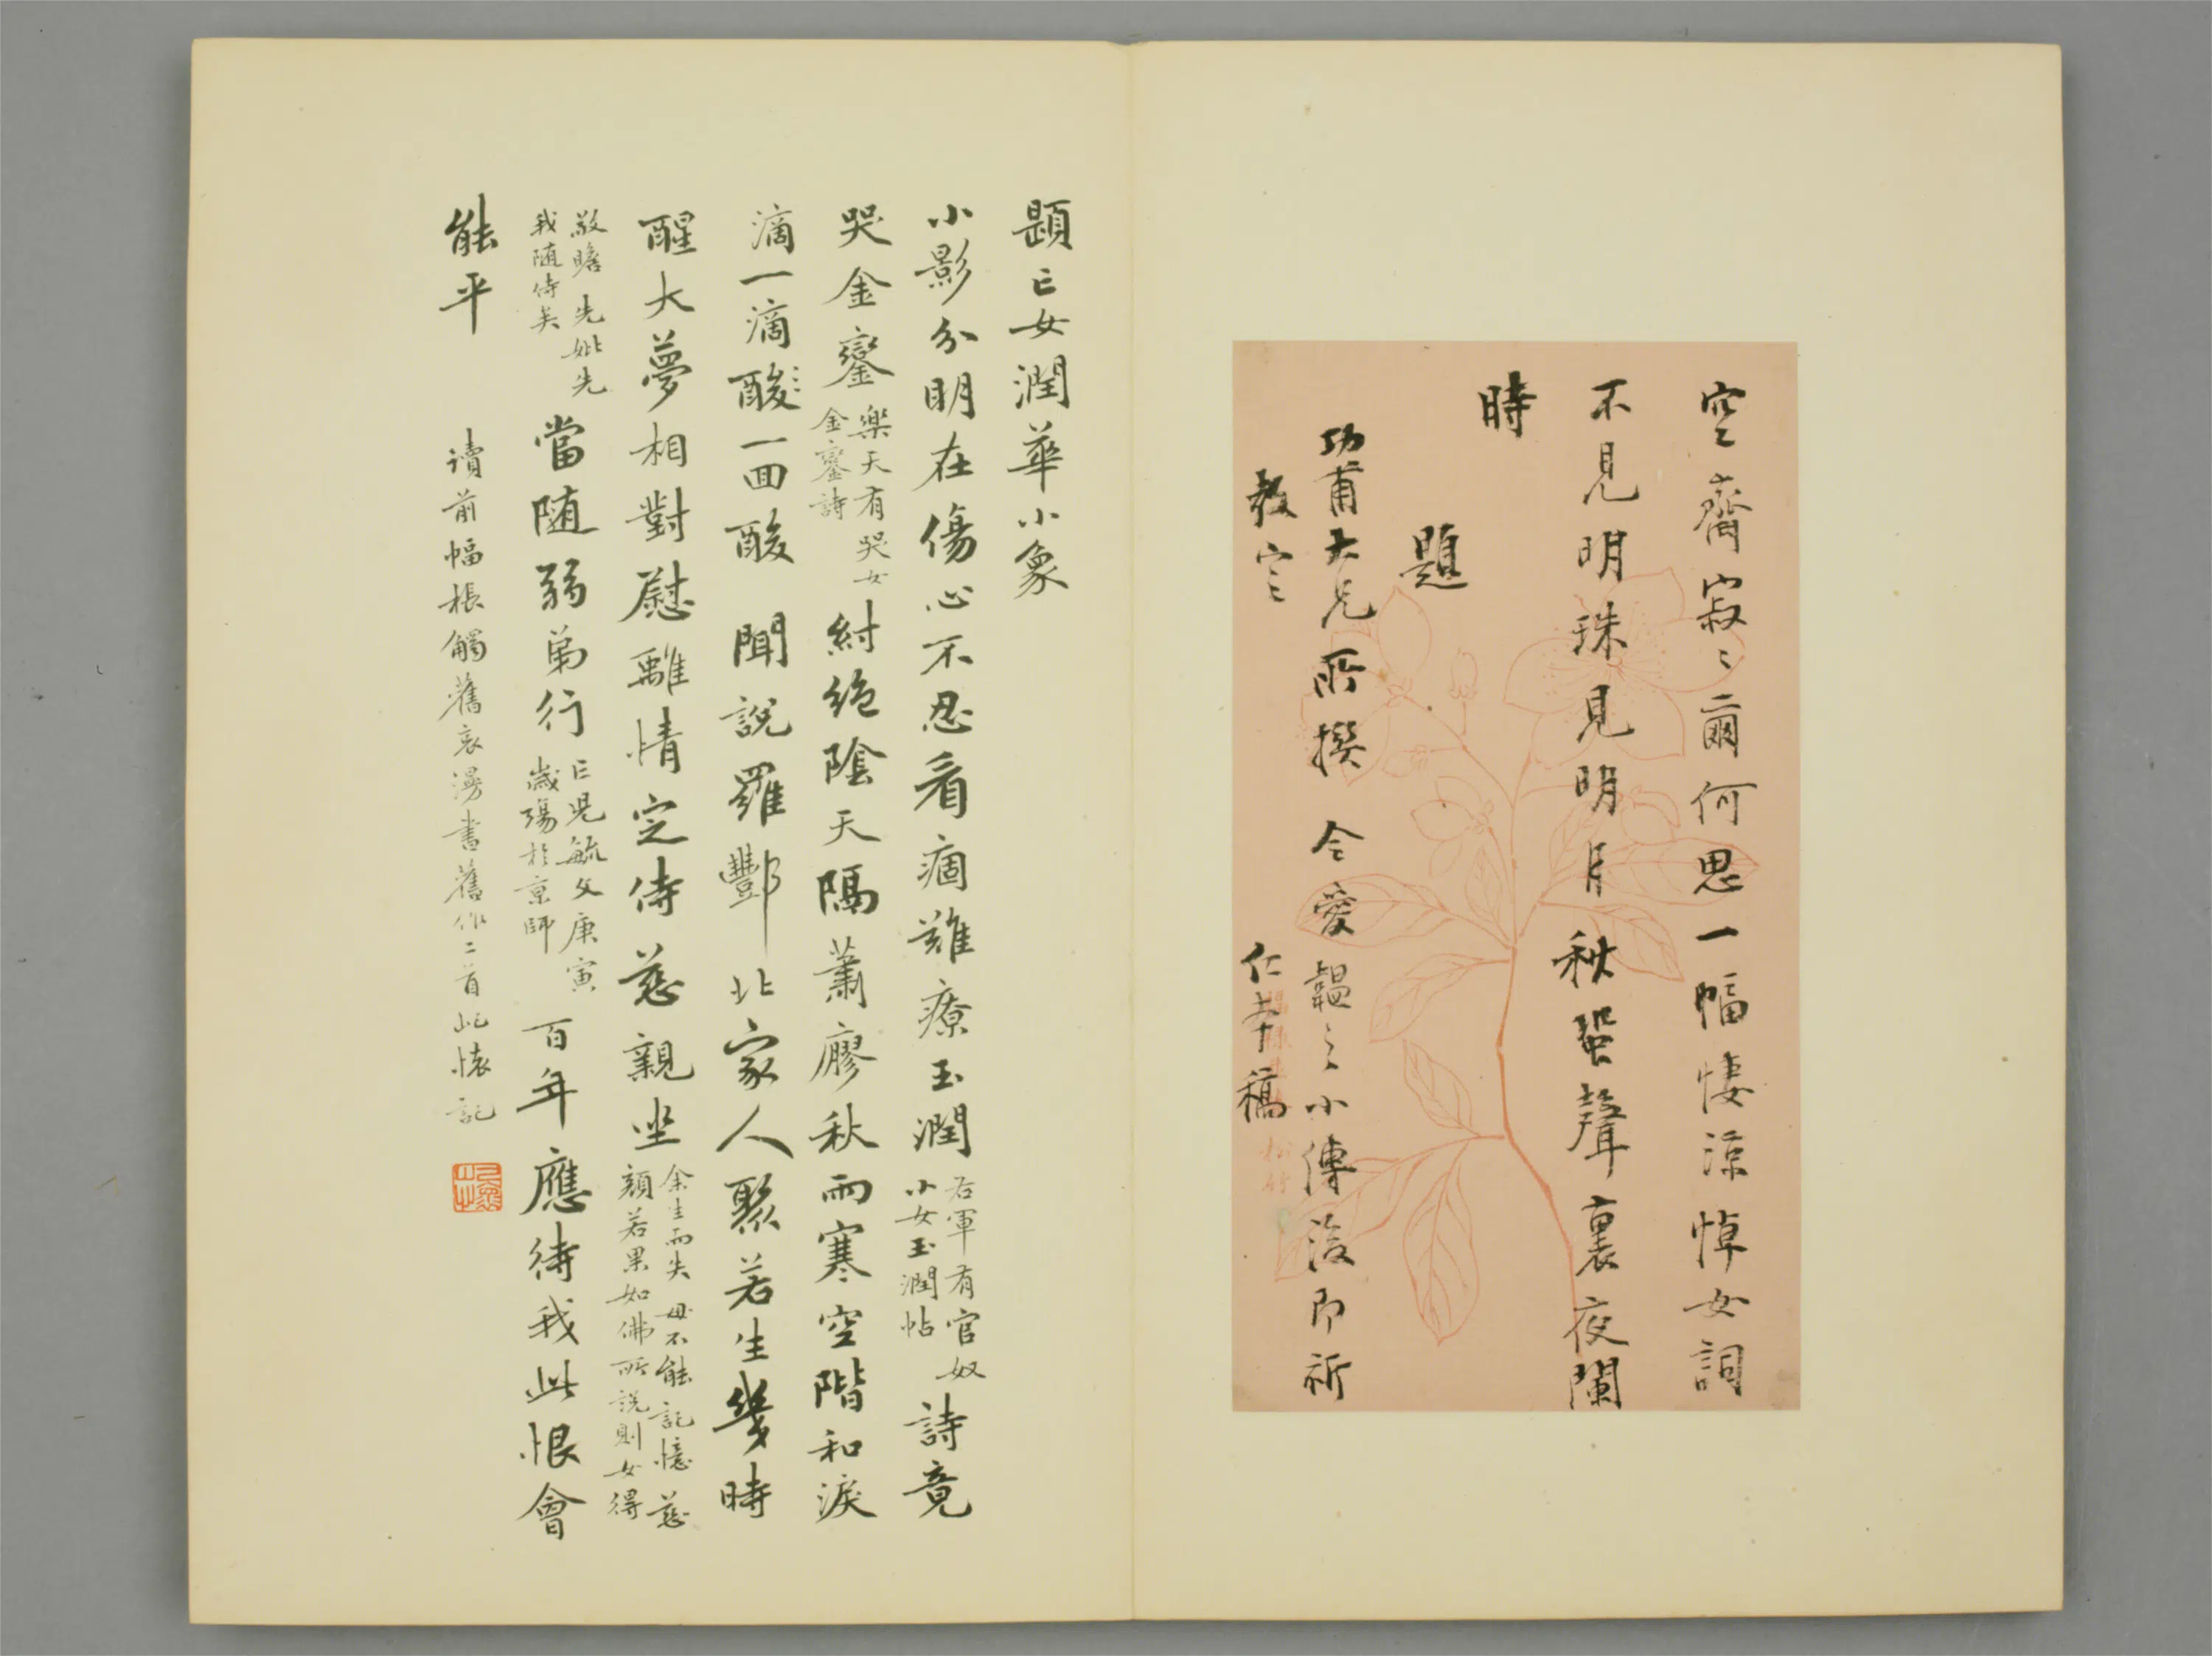 空齋寂〻爾何思一幅悽涼悼女詞
不見明珠見明月秋蛩聲裏夜闌
時
題
功甫大兄所撰 令愛韞之小傳後即祈
教定
仁孝稿
題亡女潤華小象
小影分明在傷心不忍看痼難療玉潤右軍有官奴小女玉潤帖詩竟
哭金鑾樂天有哭女金鑾詩紂絶陰天隔蕭廖秋雨寒空階和淚
滴一滴酸一回酸 聞說羅酆北家人聚若生幾時
醒大夢相對慰離情定侍慈親坐余生而失母不能記憶慈顏若果如佛所說則女得
敬瞻先妣先我随侍矣當随弱弟行亡兒毓文庚寅歲殤於京師百年應待我此恨會
能平
讀前幅棖觸舊哀漫書舊作二首此懷記